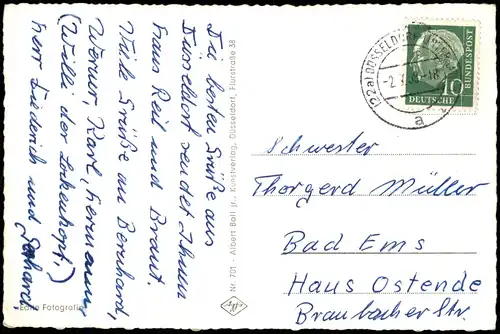 Die besten Grüße aus
Düsseldorf sendet Ihnen
Hans Reil und Braut.
Viele Grüße an Bernhard,
Werner, Karl, Hermann,
(Willi der Lockenkopf.)
Herr Diederich und
Echte Fotografie
Nr. 701 - Albert Boll jr., Kunstverlag, Düsseldorf, Flurstraße 38
(22a) DÜSSELDORF
a
10
DEUTSCHE
BUNDESPOST
Schwester
Thorgerd Müller
Bad Ems
Haus Ostende
Braubacher Str.